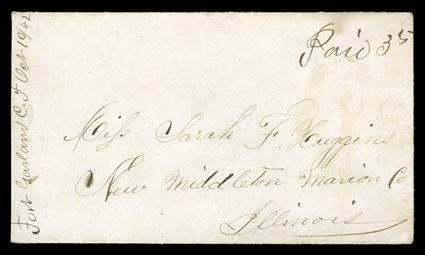 Fort Garland C.T Oct 19/62
Paid 35
Miss Sarah F. Huggins
New Middleton Marion Co
Illinois